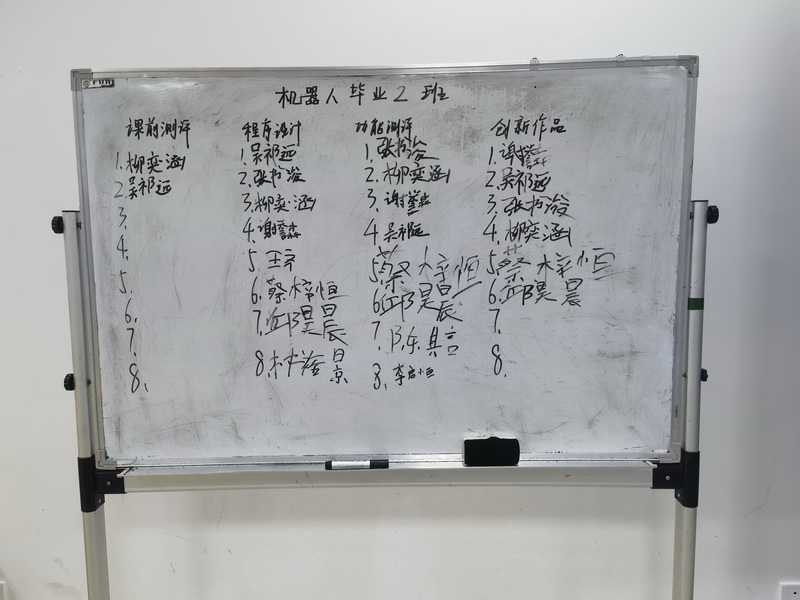 机器人毕业2班
课前测评
1.柳奕涵
2.吴祁远
3.
4.
5.
6.
7.
8.
程序设计
1.吴祁远
2.张
3.柳奕涵
4.谢
5.王
6.蔡梓恒
7.邱昊晨
8.林
功能测评
1.张
2.柳奕涵
3.谢
4.吴祁远
5.蔡梓恒
6.邱昊晨
7.陈其言
8.李启恒
创新作品
1.谢
2.吴祁远
3.张
4.柳奕涵
5.蔡梓恒
6.邱昊晨
7.
8.